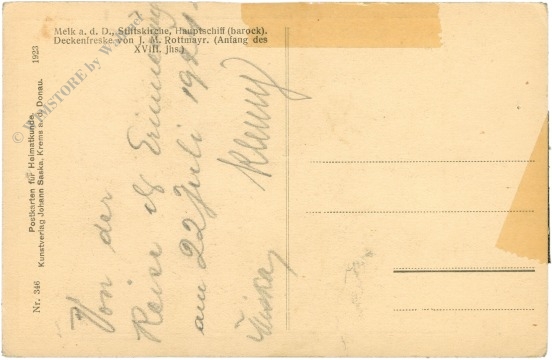 Melk a. d. D., Stiftskirche, Hauptschiff (barock).
Deckenfreske von J. M. Rottmayr. (Anfang des
XVIII. jhs.)
1923
Postkarten für Heimatkunde.
Kunstverlag Johann Saska, Krems a. d. Donau.
Nr. 346
Von der
Reise als Erinnerung
am 22 Juli